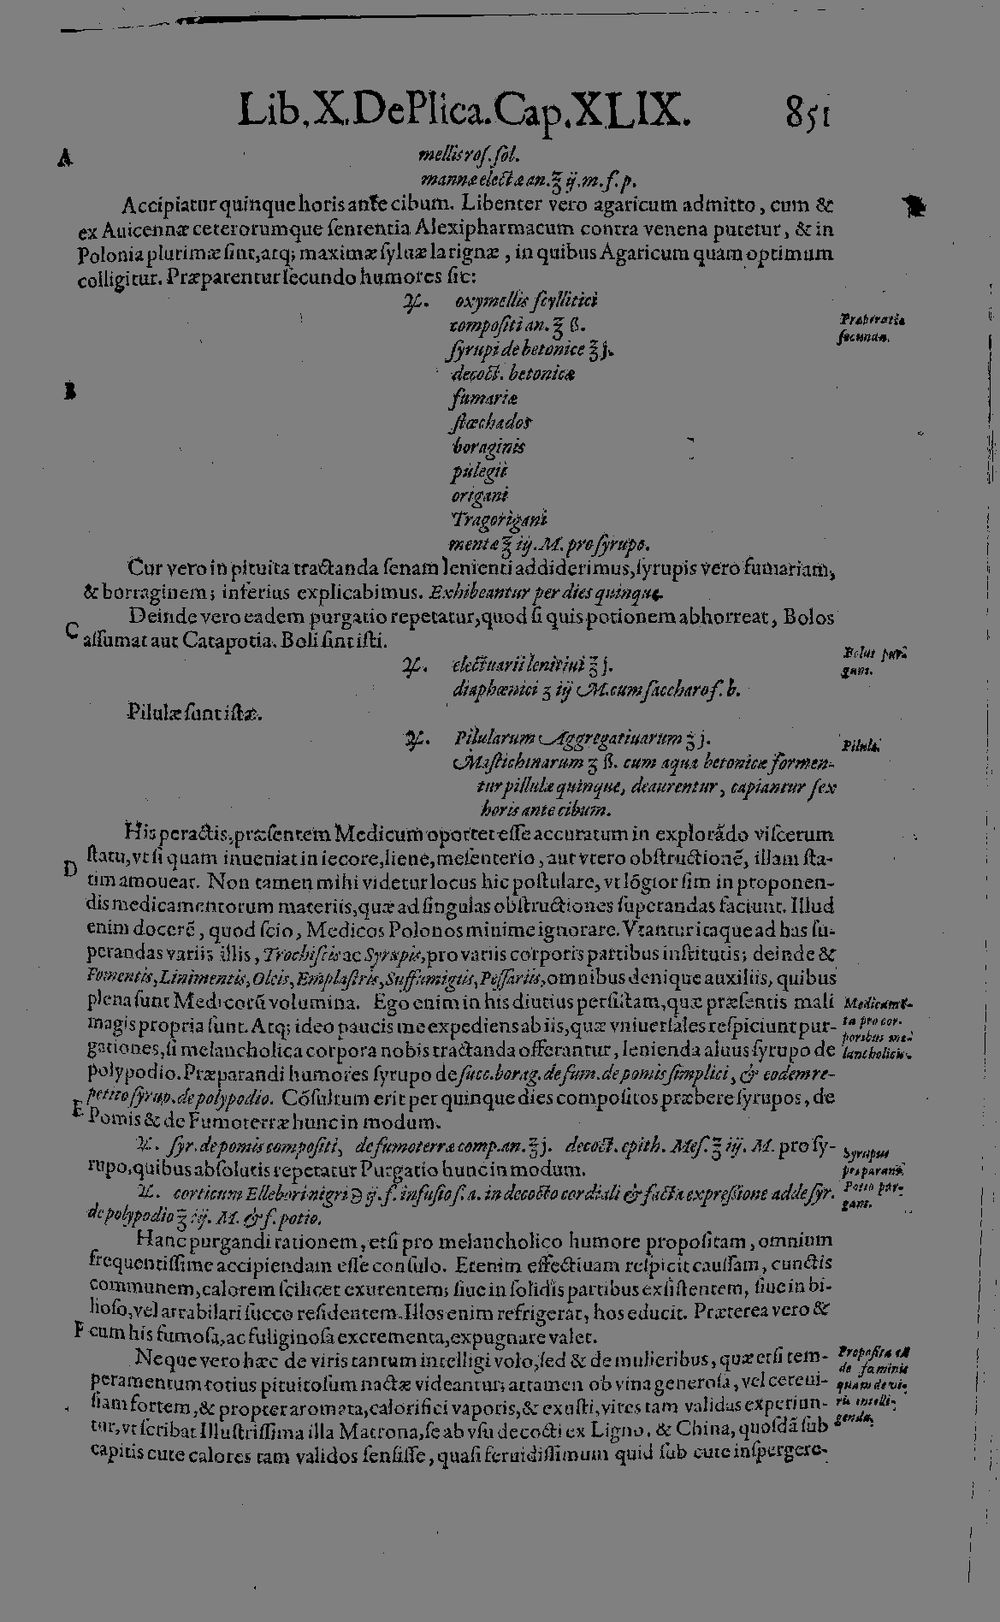 Lib. X. De Plica. Cap. XLIX. 851
A
mellis roſ. ſol.
mannæ electæ an. ℥ ij. m. f. p.
Accipiatur quinque horis ante cibum. Libenter vero agaricum admitto, cum &
ex Auicennæ ceterorumque ſententia Alexipharmacum contra venena putetur, & in
Polonia plurimæ ſint, atq; maximæ ſyluæ larignæ, in quibus Agaricum quam optimum
colligitur. Præparentur ſecundo humores ſic:
℞. oxymellis ſcyllitici
compoſiti an. ℥ ß.
ſyrupi de betonice ℥ j.
decoct. betonicæ
fumariæ
ſtæchados
boraginis
pulegii
origani
Tragorigani
mentæ ℥ iij. M. pro ſyrupo.
Præparatio
ſecunda.
B
Cur vero in pituita tractanda ſenam lenienti addiderimus, ſyrupis vero fumariam,
& borraginem; inferius explicabimus. Exhibeantur per dies quinque.
Deinde vero eadem purgatio repetatur, quod ſi quis potionem abhorreat, Bolos
C
aſſumat aut Catapotia. Boli ſint iſti.
℞. electuarii lenitiui ℥ j.
diaphœnici ʒ iij M. cum ſaccharo f. b.
Bolus pur-
gans.
Pilulæ ſunt iſtæ.
℞. Pilularum Aggregatiuarum ʒ j.
Maſtichinarum ʒ ß. cum aqua betonicæ formen-
tur pillulæ quinque, deaurentur, capiantur ſex
horis ante cibum.
Pilulæ.
His peractis, præſentem Medicum oportet eſſe accuratum in explorãdo viſcerum
D
ſtatu, vt ſi quam inueniat in iecore, liene, meſenterio, aut vtero obſtructionẽ, illam ſta-
tim amoueat. Non tamen mihi videtur locus hic poſtulare, vt lõgior ſim in proponen-
dis medicamentorum materiis, quæ ad ſingulas obſtructiones ſuperandas faciunt. Illud
enim docerẽ, quod ſcio, Medicos Polonos minime ignorare. Vtantur itaque ad has ſu-
perandas variis illis, Trochiſcis ac Syrupis, pro variis corporis partibus inſtitutis; deinde &
Fomentis, Linimentis, Oleis, Emplaſtris, Suffumigiis, Peſſariis, omnibus denique auxiliis, quibus
plena ſunt Medicorũ volumina. Ego enim in his diutius perſiſtam, quæ præſentis mali
magis propria ſunt. Atq; ideo paucis me expediens ab iis, quæ vniuerſales reſpiciunt pur-
gationes, ſi melancholica corpora nobis tractanda offerantur, lenienda aluus ſyrupo de
polypodio. Præparandi humores ſyrupo de ſucc. borag. de fum. de pomis ſimplici, & eodem re-
petito ſyrup. de polypodio. Cõſultum erit per quinque dies compoſitos præbere ſyrupos, de
Medicamẽ-
ta pro cor-
poribus me-
lancholicis.
E
Pomis & de Fumoterræ hunc in modum.
℞. ſyr. de pomis compoſiti, de fumoterræ comp. an. ℥ j. decoct. epith. Meſ. ℥ iij. M. pro ſy-
rupo, quibus abſolutis repetatur Purgatio hunc in modum.
Syrupus
præparans.
℞. corticum Ellebori nigri ℈ ij. f. infuſio ſ. a. in decocto cordiali & facta expreſſione adde ſyr.
de polypodio ℥ iij. M. & f. potio.
Potio pur-
gans.
Hanc purgandi rationem, etſi pro melancholico humore propoſitam, omnium
frequentiſſime accipiendam eſſe conſulo. Etenim effectiuam reſpicit cauſſam, cunctis
communem, calorem ſcilicet exurentem; ſiue in ſolidis partibus exſiſtentem, ſiue in bi-
lioſo, vel atrabilari ſucco reſidentem. Illos enim refrigerat, hos educit. Præterea vero &
F
cum his fumoſa, ac fuliginoſa excrementa, expugnare valet.
Neque vero hæc de viris tantum intelligi volo, ſed & de mulieribus, quæ etſi tem-
peramentum totius pituitoſum nactæ videantur; attamen ob vina generoſa, vel cereui-
ſiam fortem, & propter aromata, calorifici vaporis, & exuſti, vires tam validas experiun-
tur, vt ſcribat Illuſtriſſima illa Matrona, ſe ab vſu decocti ex Ligno, & China, quoſdã ſub
capitis cute calores tam validos ſenſiſſe, quaſi feruidiſſimum quid ſub cute inſpergere-
Propoſita
de fæminis
quam de vi-
ris intelli-
genda.